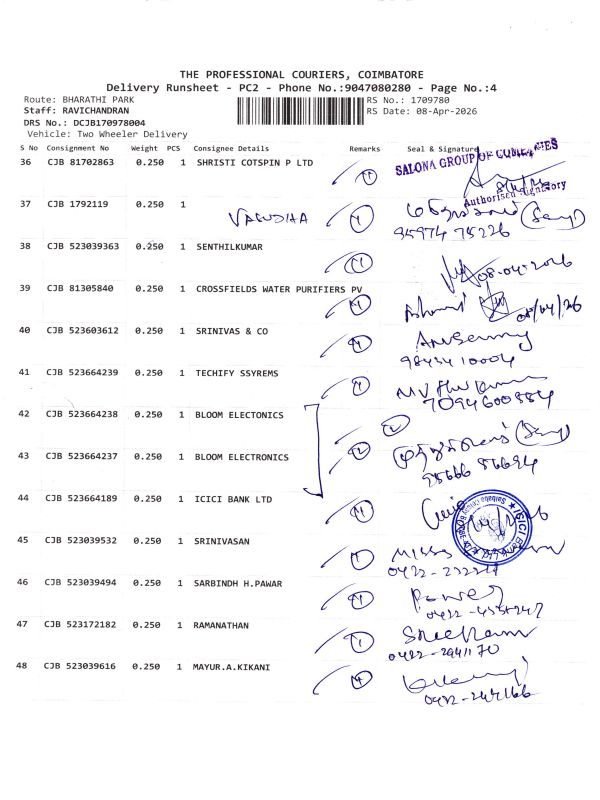 THE PROFESSIONAL COURIERS, COIMBATORE
Delivery Runsheet - PC2 - Phone No.:9047080280 - Page No.:4
Route: BHARATHI PARK
Staff: RAVICHANDRAN
DRS No.: DCJB170978004
Vehicle: Two Wheeler Delivery
RS No.: 1709780
RS Date: 08-Apr-2026
S No Consignment No Weight PCS Consignee Details Remarks Seal & Signature
36 CJB 81702863 0.250 1 SHRISTI COTSPIN P LTD
SALONA GROUP OF COMPANIES
Authorised Signatory
37 CJB 1792119 0.250 1
VASUDHA
95974 75226
38 CJB 523039363 0.250 1 SENTHILKUMAR
08-04-2026
39 CJB 81305840 0.250 1 CROSSFIELDS WATER PURIFIERS PV
08/04/26
40 CJB 523603612 0.250 1 SRINIVAS & CO
98434 10004
41 CJB 523664239 0.250 1 TECHIFY SSYREMS
7094600884
42 CJB 523664238 0.250 1 BLOOM ELECTONICS
43 CJB 523664237 0.250 1 BLOOM ELECTRONICS
44 CJB 523664189 0.250 1 ICICI BANK LTD
ICICI Bank Ltd
45 CJB 523039532 0.250 1 SRINIVASAN
46 CJB 523039494 0.250 1 SARBINDH H.PAWAR
47 CJB 523172182 0.250 1 RAMANATHAN
0422-2941170
48 CJB 523039616 0.250 1 MAYUR.A.KIKANI